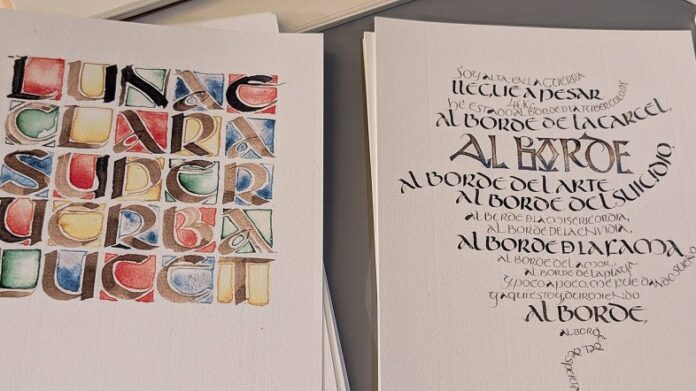 LUNAE
CLARA
SUPER
UERBA
LUCET
SOY ALTA, EN LA GUERRA
LLEGUE A PESAR
40KG
HE ESTADO AL BORDE D LA TUBERCULOSIS
AL BORDE DE LA CARCEL,
AL BORDE
AL BORDE DEL ARTE,
AL BORDE DEL SUICIDIO,
AL BORDE D LA MISERICORDIA,
AL BORDE DE LA ENVIDIA,
AL BORDE D LA FAMA
AL BORDE DEL AMOR,
AL BORDE DE LA PLAYA
Y POCO A POCO, ME FUE DANDO SUEÑO
Y AQUI ESTOY DURMIENDO
AL BORDE,
AL BORDE DEL DESPERTAR